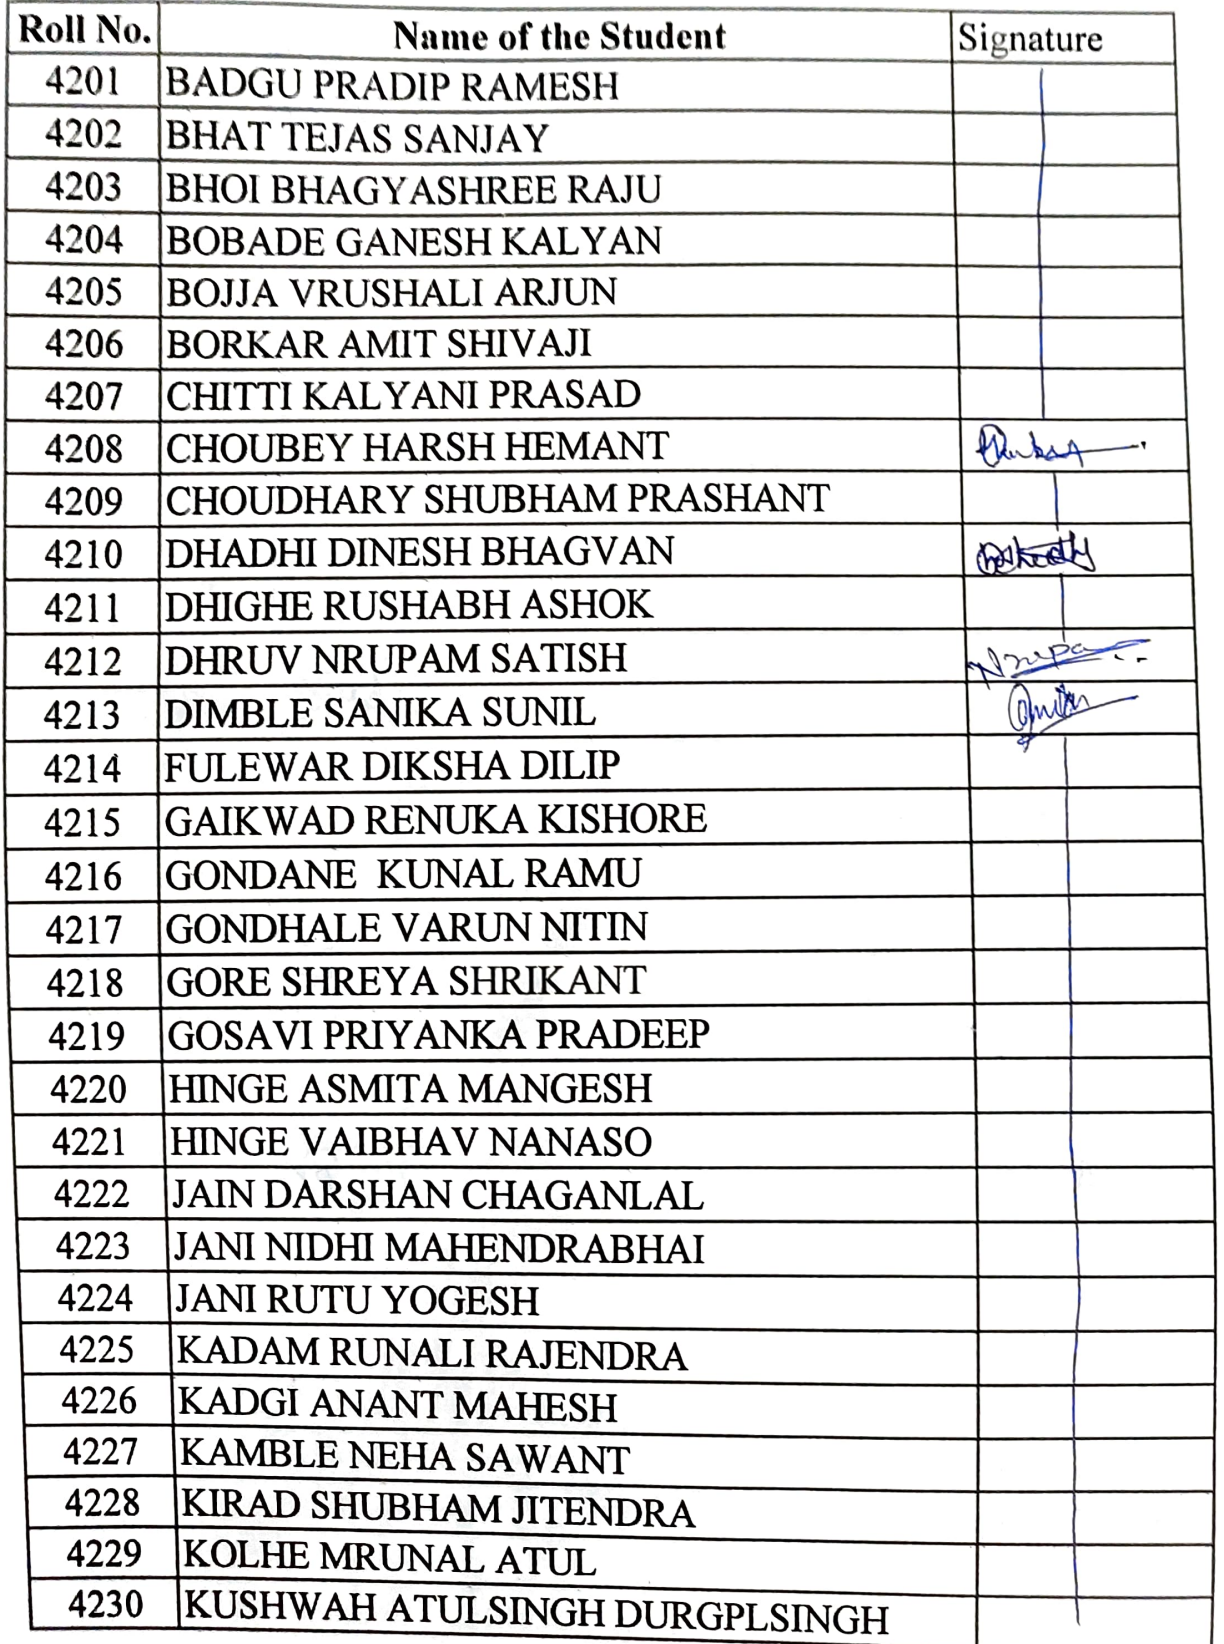 Roll No. Name of the Student Signature
4201 BADGU PRADIP RAMESH
4202 BHAT TEJAS SANJAY
4203 BHOI BHAGYASHREE RAJU
4204 BOBADE GANESH KALYAN
4205 BOJJA VRUSHALI ARJUN
4206 BORKAR AMIT SHIVAJI
4207 CHITTI KALYANI PRASAD
4208 CHOUBEY HARSH HEMANT
4209 CHOUDHARY SHUBHAM PRASHANT
4210 DHADHI DINESH BHAGVAN
4211 DHIGHE RUSHABH ASHOK
4212 DHRUV NRUPAM SATISH
4213 DIMBLE SANIKA SUNIL
4214 FULEWAR DIKSHA DILIP
4215 GAIKWAD RENUKA KISHORE
4216 GONDANE KUNAL RAMU
4217 GONDHALE VARUN NITIN
4218 GORE SHREYA SHRIKANT
4219 GOSAVI PRIYANKA PRADEEP
4220 HINGE ASMITA MANGESH
4221 HINGE VAIBHAV NANASO
4222 JAIN DARSHAN CHAGANLAL
4223 JANI NIDHI MAHENDRABHAI
4224 JANI RUTU YOGESH
4225 KADAM RUNALI RAJENDRA
4226 KADGI ANANT MAHESH
4227 KAMBLE NEHA SAWANT
4228 KIRAD SHUBHAM JITENDRA
4229 KOLHE MRUNAL ATUL
4230 KUSHWAH ATULSINGH DURGPLSINGH